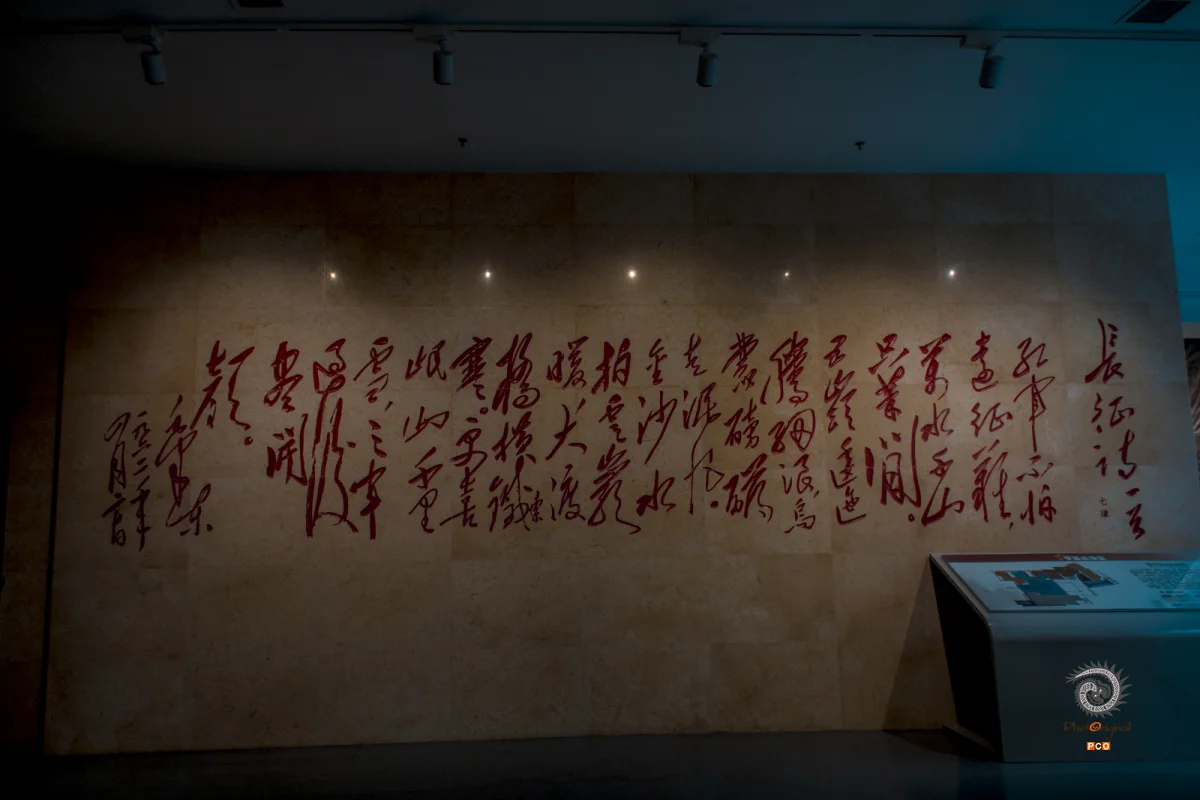 長征詩一首
七律
紅軍不怕
遠征難，
萬水千山
只等閒。
五嶺逶迤
騰細浪，烏
蒙磅礴
走泥丸。
金沙水
拍雲崖
暖大渡
橋橫鐵索
寒。更喜
岷山千里
雪，三軍
過後
盡開
顏。
毛澤東
一九六二年
四月廿日
PhotOriginal
PCO